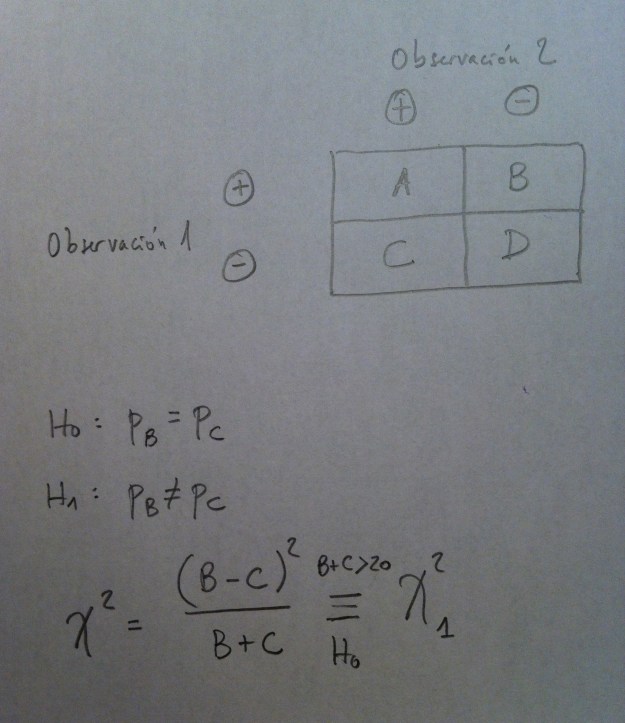 Observación 2
⊕ ⊖
⊕ A B
Observación 1
⊖ C D
H₀ : P_B = P_C
H₁ : P_B ≠ P_C
χ² = (B-C)² / B+C ≡ χ²₁
B+C>20
H₀